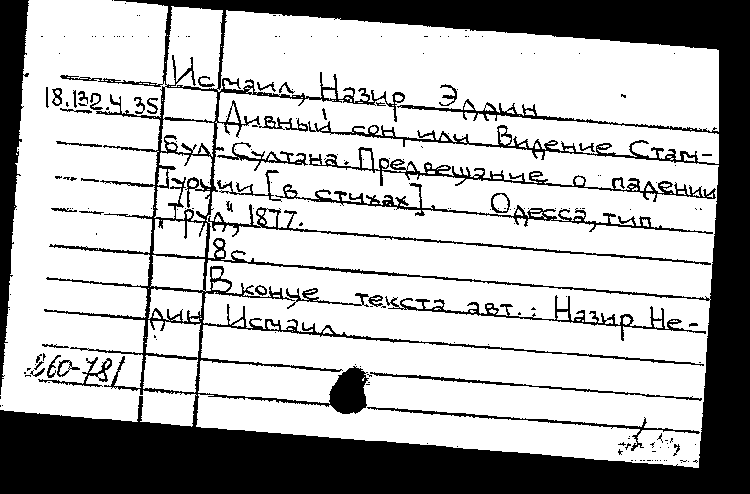 Исмаил, Назир Эддин
18.132.4.35
Дивный сон, или Видение Стам-
бул-Султана. Предвещание о падении
Турции [в стихах]. Одесса, тип.
"Труд", 1877.
8с.
В конце текста авт.: Назир Не-
дин Исмаил.
260-78/